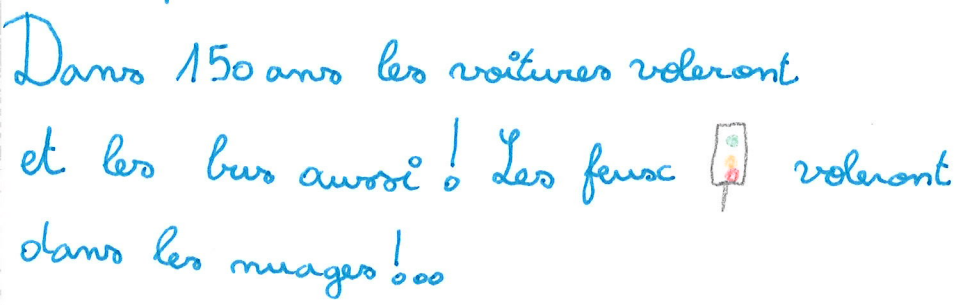 Dans 150 ans les voitures voleront
et les bus aussi ! Les feux voleront
dans les nuages !...